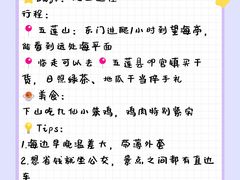 行程：
📍五莲山：东门进爬1小时到望海亭，
能看到远处海平面
📍临走可以去📍五莲县叩官镇买干
货，日照绿茶、地瓜干当伴手礼
🍲美食：
下山吃九仙小柴鸡，鸡肉特别紧实
💡Tips：
1.海边早晚温差大，带薄外套
2.想省钱就坐公交，景点之间都有直达
车